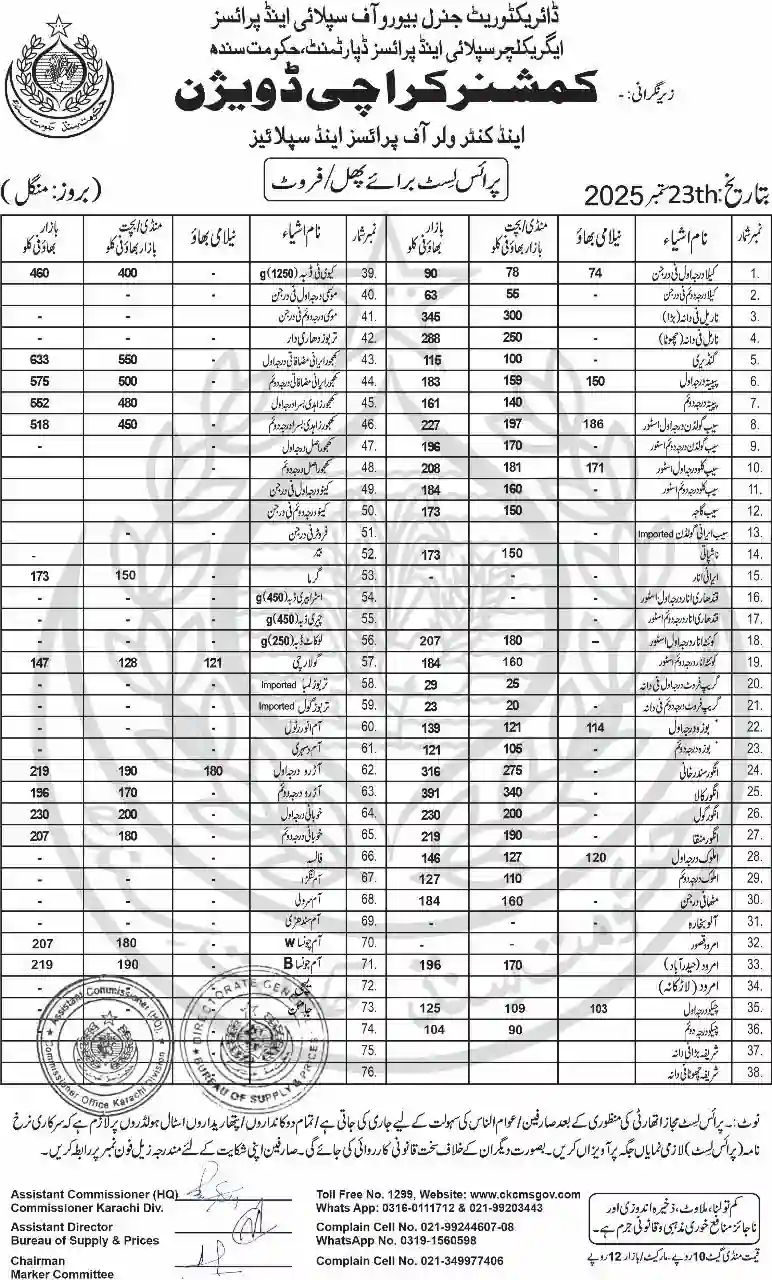 ڈائریکٹوریٹ جنرل بیورو آف سپلائی اینڈ پرائسز
ایگریکلچر سپلائی اینڈ پرائسز ڈپارٹمنٹ، حکومت سندھ
زیرنگرانی:-
کمشنر کراچی ڈویژن
اینڈ کنٹرولر آف پرائسز اینڈ سپلائیز
پرائس لسٹ برائے پھل/فروٹ
تاریخ: 23th ستمبر 2025
(بروز: منگل)
نمبر شمار نام اشیاء نیلامی بھاؤ منڈی/بچت بازار بھاؤ فی کلو بازار بھاؤ فی کلو
1. کیلا درجہ اول فی درجن 74 78 90
2. کیلا درجہ دوئم فی درجن - 55 63
3. ناریل فی دانہ (بڑا) - 300 345
4. ناریل فی دانہ (چھوٹا) - 250 288
5. گنڈیری - 100 115
6. پپیتہ درجہ اول 150 159 183
7. پپیتہ درجہ دوئم - 140 161
8. سیب گولڈن درجہ اول اسٹور 186 197 227
9. سیب گولڈن درجہ دوئم اسٹور - 170 196
10. سیب کلو درجہ اول اسٹور 171 181 208
11. سیب کلو درجہ دوئم اسٹور - 160 184
12. سیب گاچہ 150 173
13. سیب ایرانی گولڈن Imported
14. ناشپاتی 150 173
15. ایرانی انار - - -
16. قندھاری انار درجہ اول اسٹور
17. قندھاری انار درجہ دوئم اسٹور
18. کوئٹہ انار درجہ اول اسٹور – 180 207
19. کوئٹہ انار درجہ دوئم اسٹور - 160 184
20. گریپ فروٹ درجہ اول فی دانہ - 25 29
21. گریپ فروٹ درجہ دوئم فی دانہ - 20 23
22. درجہ اول 114 121 139
23. درجہ دوئم - 105 121
24. انگور سندرخانی - 275 316
25. انگور کالا - 340 391
26. انگور گول - 200 230
27. انگور منقا - 190 219
28. املوک درجہ اول 120 127 146
29. املوک درجہ دوئم - 110 127
30. مٹھا فی درجن - 160 184
31. آلو بخارہ - - -
32. امرود قصور - - -
33. امرود (حیدرآباد) - 170 196
34. امرود (لاڑکانہ)
35. چیکو درجہ اول 103 109 125
36. چیکو درجہ دوئم - 90 104
37. شریفہ بڑا فی دانہ
38. شریفہ چھوٹا فی دانہ
نمبر شمار نام اشیاء نیلامی بھاؤ منڈی/بچت بازار بھاؤ فی کلو بازار بھاؤ فی کلو
39. کیوی فی ڈبہ (1250)g - 400 460
40. موسمی درجہ اول فی درجن - - -
41. موسمی درجہ دوئم فی درجن - -
42. تربوز دھاری دار - - -
43. کھجور ایرانی مضافاتی درجہ اول - 550 633
44. کھجور ایرانی مضافاتی درجہ دوئم - 500 575
45. کھجور زاہدی بسرا درجہ اول - 480 552
46. کھجور زاہدی بسرا درجہ دوئم - 450 518
47. کھجور اصل درجہ اول -
48. کھجور اصل درجہ دوئم -
49. کینو درجہ اول فی درجن
50. کینو درجہ دوئم فی درجن
51. فروٹر فی درجن - -
52. بیر -
53. گرما - 150 173
54. اسٹرابیری ڈبہ (450)g
55. چیری ڈبہ (450)g
56. لوکاٹ ڈبہ (250)g
57. گولارچی 121 128 147
58. تربوز لمبا Imported - - -
59. تربوز گول Imported - - -
60. آم انور رٹول - - -
61. آم دسہری - - -
62. آڑو درجہ اول 180 190 219
63. آڑو درجہ دوئم - 170 196
64. خوبانی درجہ اول - 200 230
65. خوبانی درجہ دوئم - 180 207
66. فالسہ - - -
67. آم لنگڑا - - -
68. آم سرولی - - -
69. آم سندھڑی - - -
70. آم چونسا W - 180 207
71. آم چونسا B - 190 219
72.
73. جامن
74.
75.
76.
Assistant Commissioner (HQ).
Commissioner Office Karachi Division
DIRECTORATE GENERAL
BUREAU OF SUPPLY & PRICES
نوٹ:- پرائس لسٹ مجاز اتھارٹی کی منظوری کے بعد صارفین/عوام الناس کی سہولت کے لیے جاری کی جاتی ہے/تمام دوکانداروں/پتھاریداروں اسٹال ہولڈروں پر لازم ہے کہ سرکاری نرخ
نامہ (پرائس لسٹ) لازمی نمایاں جگہ پر آویزاں کریں۔ بصورت دیگر ان کے خلاف سخت قانونی کارروائی کی جائے گی۔ صارفین اپنی شکایت کے لئے مندرجہ زیل فون نمبر پر رابطہ کریں۔
Assistant Commissioner (HQ)
Commissioner Karachi Div.
Assistant Director
Bureau of Supply & Prices
Chairman
Marker Committee
Toll Free No. 1299, Website: www.ckcmsgov.com
Whats App: 0316-0111712 & 021-99203443
Complain Cell No. 021-99244607-08
WhatsApp No. 0319-1560598
Complain Cell No. 021-349977406
کم تولنا، ملاوٹ، ذخیرہ اندوزی اور
ناجائز منافع خوری مذہبی و قانونی جرم ہے۔
قیمت منڈی گیٹ 10 روپے، مارکیٹ/بازار 12 روپے